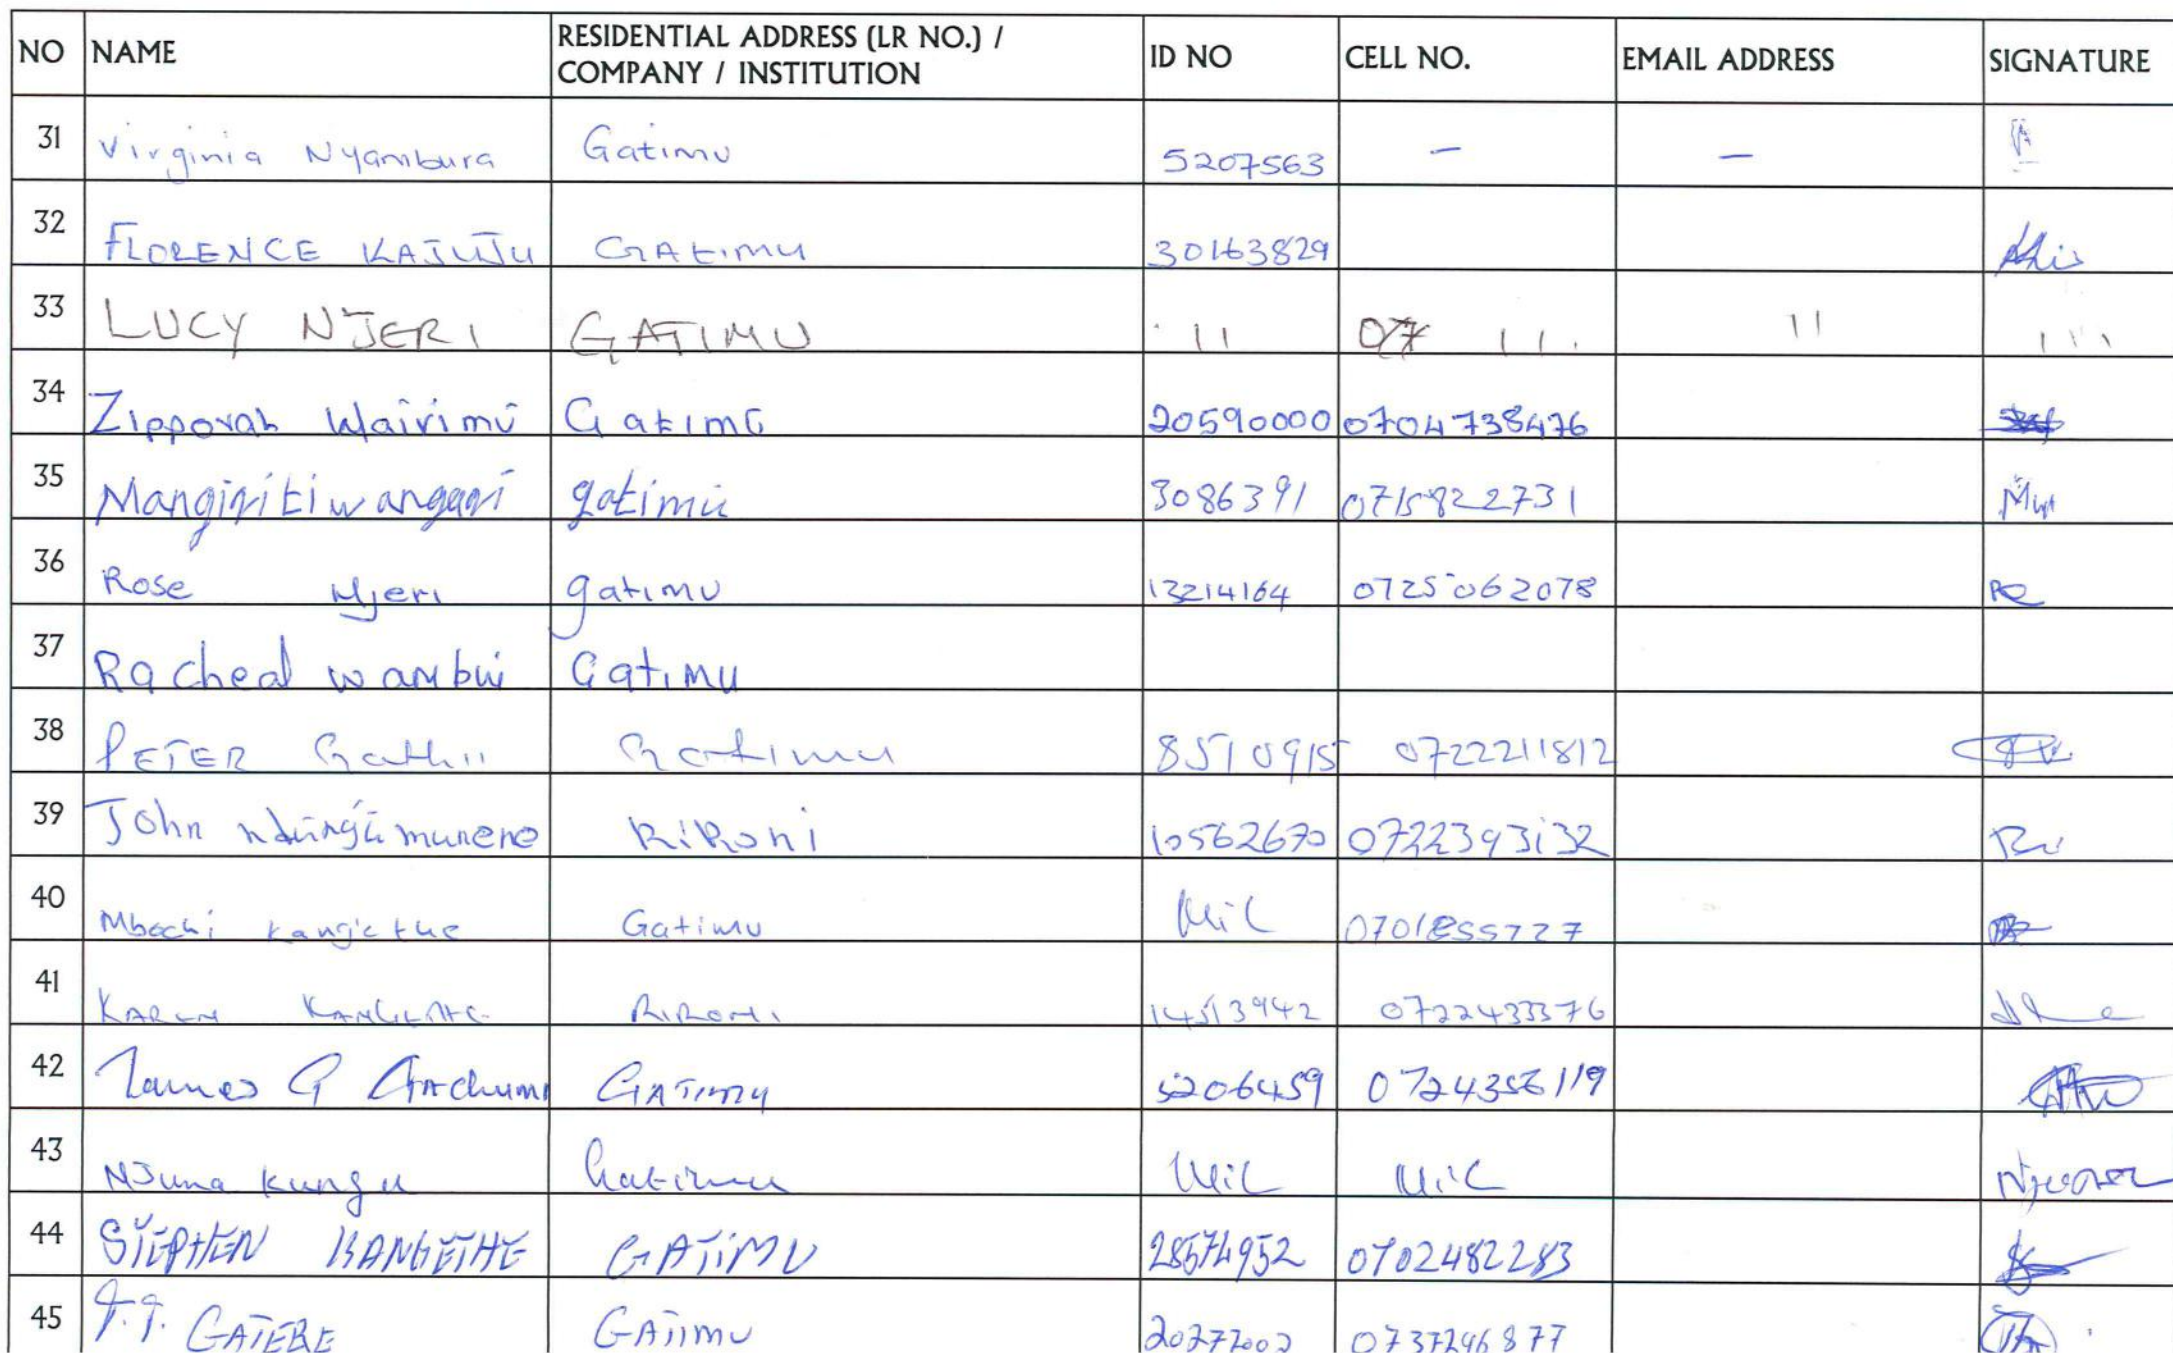 NO NAME RESIDENTIAL ADDRESS (LR NO.) / COMPANY / INSTITUTION ID NO CELL NO. EMAIL ADDRESS SIGNATURE
31 Virginia Nyambura Gatimu 5207563 - -
32 FLORENCE KAJUJU GAtimu 30163829
33 LUCY NJERI GATIMU 11 07 11. 11 111
34 Zipporah Wairimu Gatimu 20590000 0704738476
35 gatimu 3086391 0715822731
36 Rose Njeri gatimu 13214164 0725062078
37 Racheal wambui Gatimu
38 PETER Gathii Gatimu 8510915 0722211812
39 John ndungu munene RiRoni 10562670 0722393132
40 Gatimu Nil
41 KAREN RIRONI 14513942 0722433376
42 James G GATIMU 5206459
43 Njuna kungu Gatimu Nil Nil
44 STEPHEN KANGETHE GATIMU 28574952 0702482283
45 GATEBE GATIMU